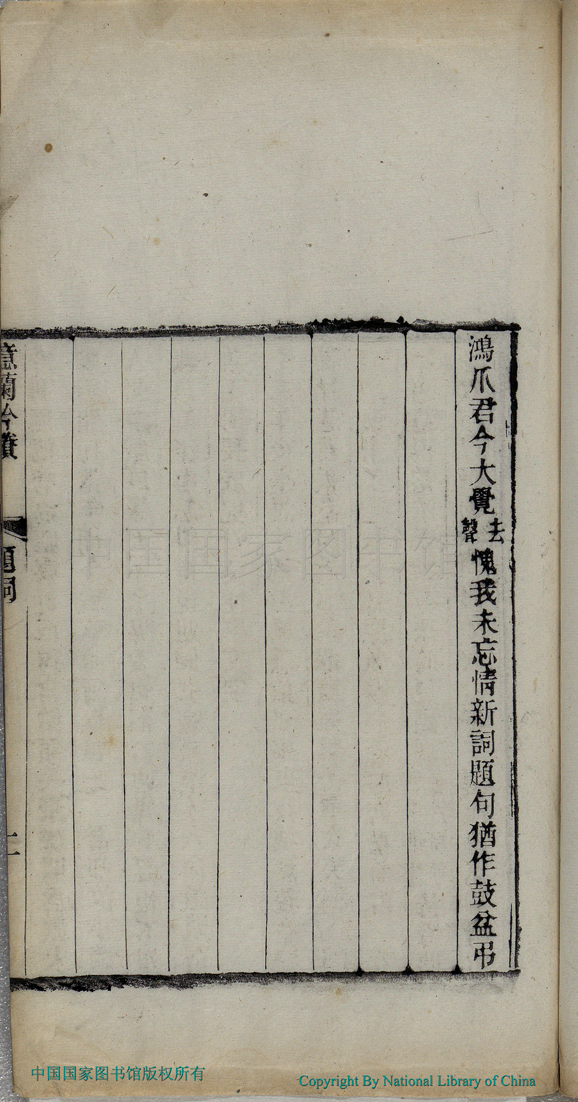 鴻爪君今大覺去聲愧我未忘情新詞題句猶作鼓盆弔
憶蘭吟賸
題詞
中国国家图书馆
中国国家图书馆版权所有
Copyright By National Library of China